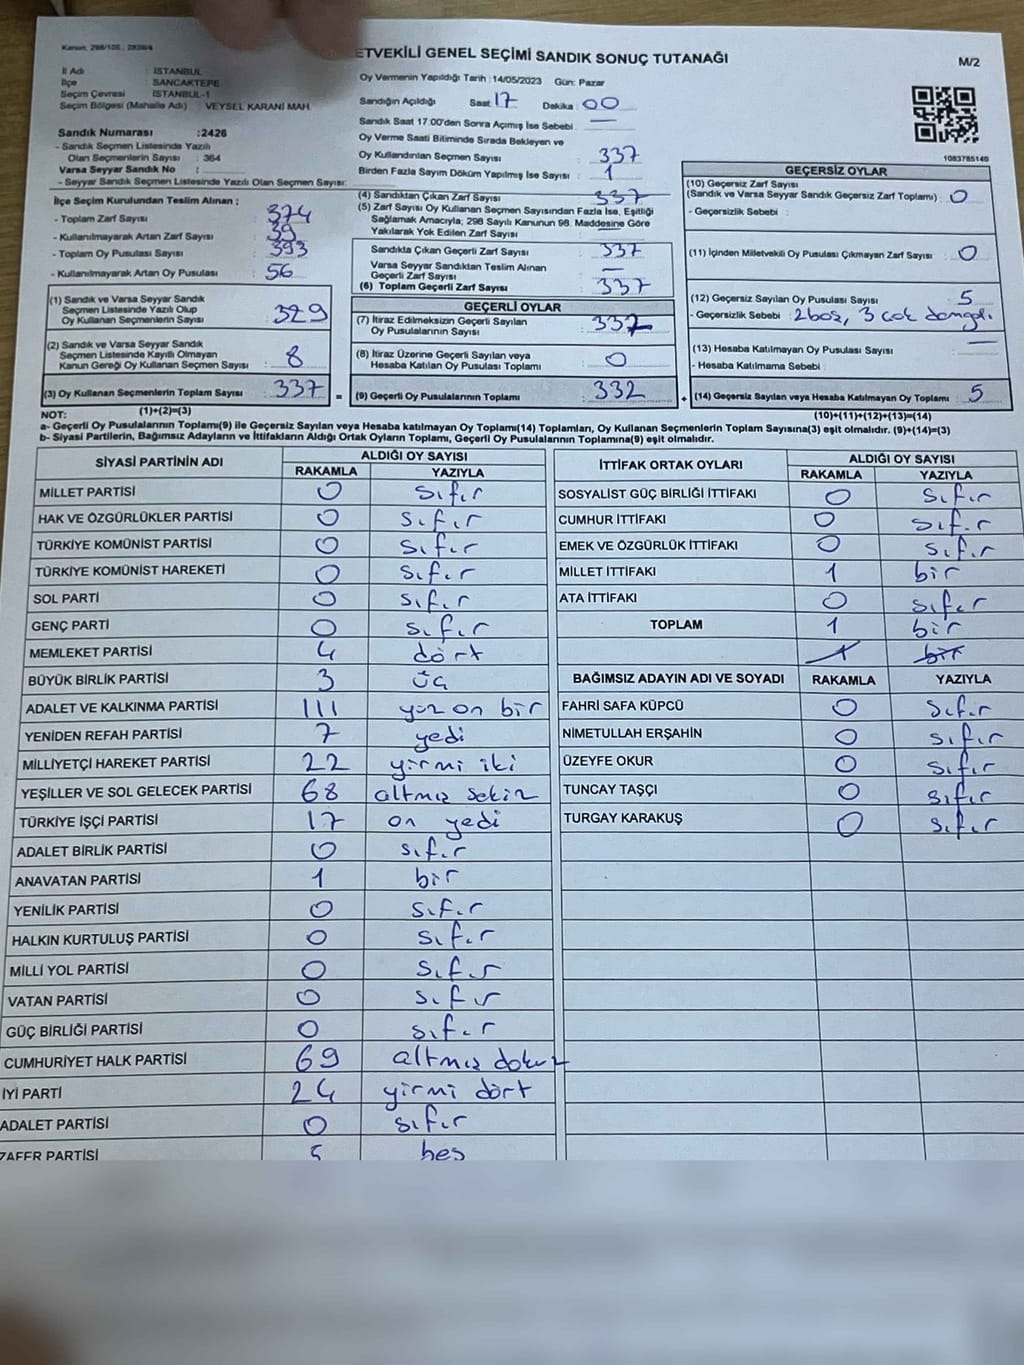 Kanun: 298/105, 2839/4
ETVEKİLİ GENEL SEÇİMİ SANDIK SONUÇ TUTANAĞI
M/2
İl Adı : İSTANBUL
İlçe : SANCAKTEPE
Seçim Çevresi : İSTANBUL-1
Seçim Bölgesi (Mahalle Adı) : VEYSEL KARANİ MAH.
Sandık Numarası :2426
- Sandık Seçmen Listesinde Yazılı
Olan Seçmenlerin Sayısı : 364
Varsa Seyyar Sandık No :
- Seyyar Sandık Seçmen Listesinde Yazılı Olan Seçmen Sayısı:
İlçe Seçim Kurulundan Teslim Alınan :
- Toplam Zarf Sayısı : 374
- Kullanılmayarak Artan Zarf Sayısı : 39
- Toplam Oy Pusulası Sayısı : 393
- Kullanılmayarak Artan Oy Pusulası : 56
(1) Sandık ve Varsa Seyyar Sandık
Seçmen Listesinde Yazılı Olup
Oy Kullanan Seçmenlerin Sayısı : 329
(2) Sandık ve Varsa Seyyar Sandık
Seçmen Listesinde Kayıtlı Olmayan
Kanun Gereği Oy Kullanan Seçmen Sayısı : 8
(3) Oy Kullanan Seçmenlerin Toplam Sayısı : 337 =
Oy Vermenin Yapıldığı Tarih :14/05/2023 Gün: Pazar
Sandığın Açıldığı Saat: 17 Dakika : 00
Sandık Saat 17:00'den Sonra Açımış İse Sebebi : —
Oy Verme Saati Bitiminde Sırada Bekleyen ve
Oy Kullandırılan Seçmen Sayısı : 337
Birden Fazla Sayım Döküm Yapılmış İse Sayısı : 1
(4) Sandıktan Çıkan Zarf Sayısı : 337
(5) Zarf Sayısı Oy Kullanan Seçmen Sayısından Fazla İse, Eşitliği
Sağlamak Amacıyla; 298 Sayılı Kanunun 98. Maddesine Göre
Yakılarak Yok Edilen Zarf Sayısı :
Sandıkta Çıkan Geçerli Zarf Sayısı : 337
Varsa Seyyar Sandıktan Teslim Alınan
Geçerli Zarf Sayısı : —
(6) Toplam Geçerli Zarf Sayısı : 337
GEÇERLİ OYLAR
(7) İtiraz Edilmeksizin Geçerli Sayılan
Oy Pusulalarının Sayısı : 332
(8) İtiraz Üzerine Geçerli Sayılan veya
Hesaba Katılan Oy Pusulası Toplamı : 0
(9) Geçerli Oy Pusulalarının Toplamı : 332 +
1083785140
GEÇERSİZ OYLAR
(10) Geçersiz Zarf Sayısı
(Sandık ve Varsa Seyyar Sandık Geçersiz Zarf Toplamı) : 0
- Geçersizlik Sebebi :
(11) İçinden Milletvekili Oy Pusulası Çıkmayan Zarf Sayısı : 0
(12) Geçersiz Sayılan Oy Pusulası Sayısı : 5
- Geçersizlik Sebebi : 2 boş, 3 çok damgalı
(13) Hesaba Katılmayan Oy Pusulası Sayısı : —
- Hesaba Katılmama Sebebi :
(14) Geçersiz Sayılan veya Hesaba Katılmayan Oy Toplamı : 5
NOT: (1)+(2)=(3) (10)+(11)+(12)+(13)=(14)
a- Geçerli Oy Pusulasının Toplamı(9) ile Geçersiz Sayılan veya Hesaba katılmayan Oy Toplamı(14) Toplamları, Oy Kullanan Seçmenlerin Toplam Sayısına(3) eşit olmalıdır. (9)+(14)=(3)
b- Siyasi Partilerin, Bağımsız Adayların ve İttifakların Aldığı Ortak Oyların Toplamı, Geçerli Oy Pusulalarının Toplamına(9) eşit olmalıdır.
SİYASİ PARTİNİN ADI ALDIĞI OY SAYISI
RAKAMLA YAZIYLA
MİLLET PARTİSİ 0 sıfır
HAK VE ÖZGÜRLÜKLER PARTİSİ 0 sıfır
TÜRKİYE KOMÜNİST PARTİSİ 0 sıfır
TÜRKİYE KOMÜNİST HAREKETİ 0 sıfır
SOL PARTİ 0 sıfır
GENÇ PARTİ 0 sıfır
MEMLEKET PARTİSİ 4 dört
BÜYÜK BİRLİK PARTİSİ 3 üç
ADALET VE KALKINMA PARTİSİ 111 yüz on bir
YENİDEN REFAH PARTİSİ 7 yedi
MİLLİYETÇİ HAREKET PARTİSİ 22 yirmi iki
YEŞİLLER VE SOL GELECEK PARTİSİ 68 altmış sekiz
TÜRKİYE İŞÇİ PARTİSİ 17 on yedi
ADALET BİRLİK PARTİSİ 0 sıfır
ANAVATAN PARTİSİ 1 bir
YENİLİK PARTİSİ 0 sıfır
HALKIN KURTULUŞ PARTİSİ 0 sıfır
MİLLİ YOL PARTİSİ 0 sıfır
VATAN PARTİSİ 0 sıfır
GÜÇ BİRLİĞİ PARTİSİ 0 sıfır
CUMHURİYET HALK PARTİSİ 69 altmış dokuz
İYİ PARTİ 24 yirmi dört
ADALET PARTİSİ 0 sıfır
ZAFER PARTİSİ 5 beş
İTTİFAK ORTAK OYLARI ALDIĞI OY SAYISI
RAKAMLA YAZIYLA
SOSYALİST GÜÇ BİRLİĞİ İTTİFAKI 0 sıfır
CUMHUR İTTİFAKI 0 sıfır
EMEK VE ÖZGÜRLÜK İTTİFAKI 0 sıfır
MİLLET İTTİFAKI 1 bir
ATA İTTİFAKI 0 sıfır
TOPLAM 1 bir
1 bir
BAĞIMSIZ ADAYIN ADI VE SOYADI RAKAMLA YAZIYLA
FAHRİ SAFA KÜPCÜ 0 sıfır
NİMETULLAH ERŞAHİN 0 sıfır
ÜZEYFE OKUR 0 sıfır
TUNCAY TAŞÇI 0 sıfır
TURGAY KARAKUŞ 0 sıfır